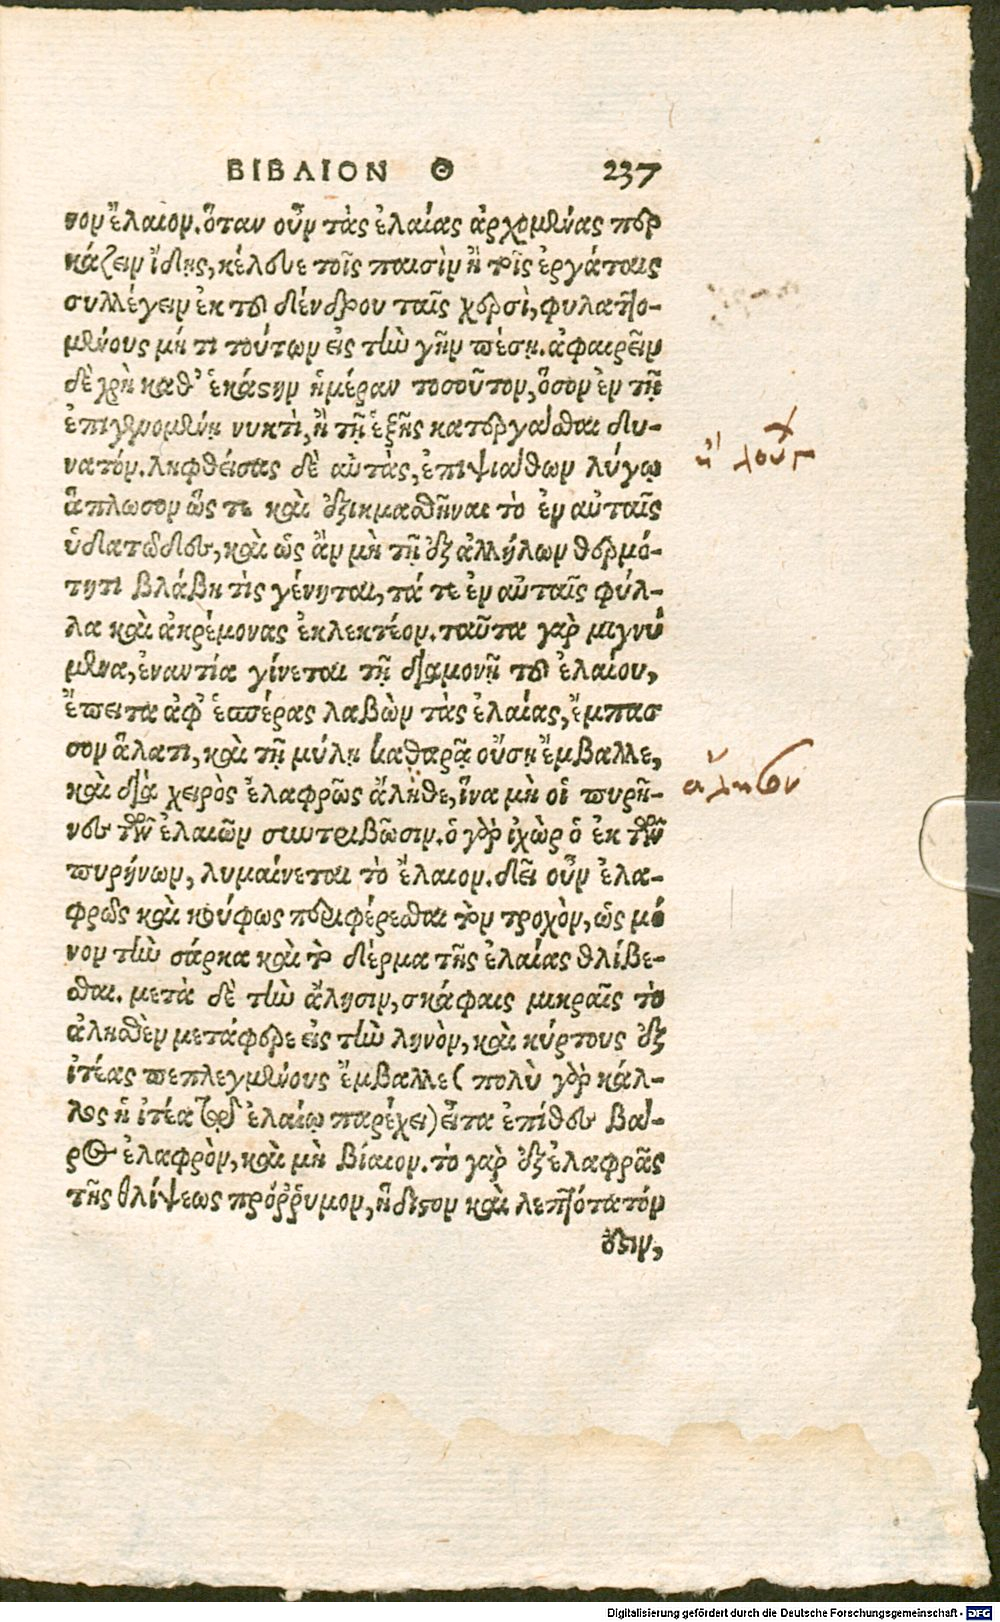 ΒΙΒΛΙΟΝ Θ 237
τον ἔλαιον. ὅταν οὖν τὰς ἐλαίας ἀρχομένας περ
κάζειν ἴδῃς, κέλευε τοῖς παισὶν ἢ τοῖς ἐργάταις
συλλέγειν ἐκ τοῦ δένδρου ταῖς χερσὶ, φυλαττο-
μένους μή τι τούτων εἰς τὴν γῆν πέσῃ. ἀφαιρεῖν
δὲ χρὴ καθ' ἑκάστην ἡμέραν τοσοῦτον, ὅσον ἐν τῇ
ἐπιγενομένῃ νυκτὶ, ἢ τῇ ἑξῆς κατεργάσασθαι δυ-
νατόν. ληφθείσας δὲ αὐτὰς, ἐπι ψιάθων λύγῳ
ἅπλωσον ὥς τε καὶ ἐξικμασθῆναι τὸ ἐν αὐταῖς
ὑδατῶδες, καὶ ὡς ἂν μὴ τῇ ἐξ ἀλλήλων θερμό-
τητι βλάβη τὶς γένηται, τά τε ἐν αὐταῖς φύλ-
λα καὶ ἀκρέμονας ἐκλεκτέον. ταῦτα γὰρ μιγνύ
μενα, ἐναντία γίνεται τῇ διαμονῇ τοῦ ἐλαίου,
ἔπειτα ἀφ' ἑσπέρας λαβὼν τὰς ἐλαίας, ἔμπασ
σον ἅλατι, καὶ τῇ μύλῃ καθαρᾷ οὔσῃ ἔμβαλλε,
καὶ διὰ χειρὸς ἐλαφρῶς ἄληθε, ἵνα μὴ οἱ πυρῆ-
νες τῶν ἐλαιῶν συντριβῶσιν. ὁ γὰρ ἰχὼρ ὁ ἐκ τῶν
πυρήνων, λυμαίνεται τὸ ἔλαιον. δεῖ οὖν ἐλα-
φρῶς καὶ κούφως περιφέρεσθαι τὸν τροχὸν, ὡς μό
νον τὴν σάρκα καὶ τὸ δέρμα τῆς ἐλαίας θλίβε-
σθαι. μετὰ δὲ τὴν ἄλησιν, σκάφαις μικραῖς τὸ
ἀλησθὲν μετάφερε εἰς τὴν ληνὸν, καὶ κύρτους ἐξ
ἰτέας πεπλεγμένους ἔμβαλλε ( πολὺ γὰρ κάλ-
λος ἡ ἰτέα τῷ ἐλαίῳ παρέχει) εἶτα ἐπίθες βά-
ρος ἐλαφρὸν, καὶ μὴ βίαιον. τὸ γὰρ ἐξ ἐλαφρᾶς
τῆς θλίψεως πρόῤῥυμον, ἥδιστον καὶ λεπτότατόν
ἐστιν,
ἄλησον